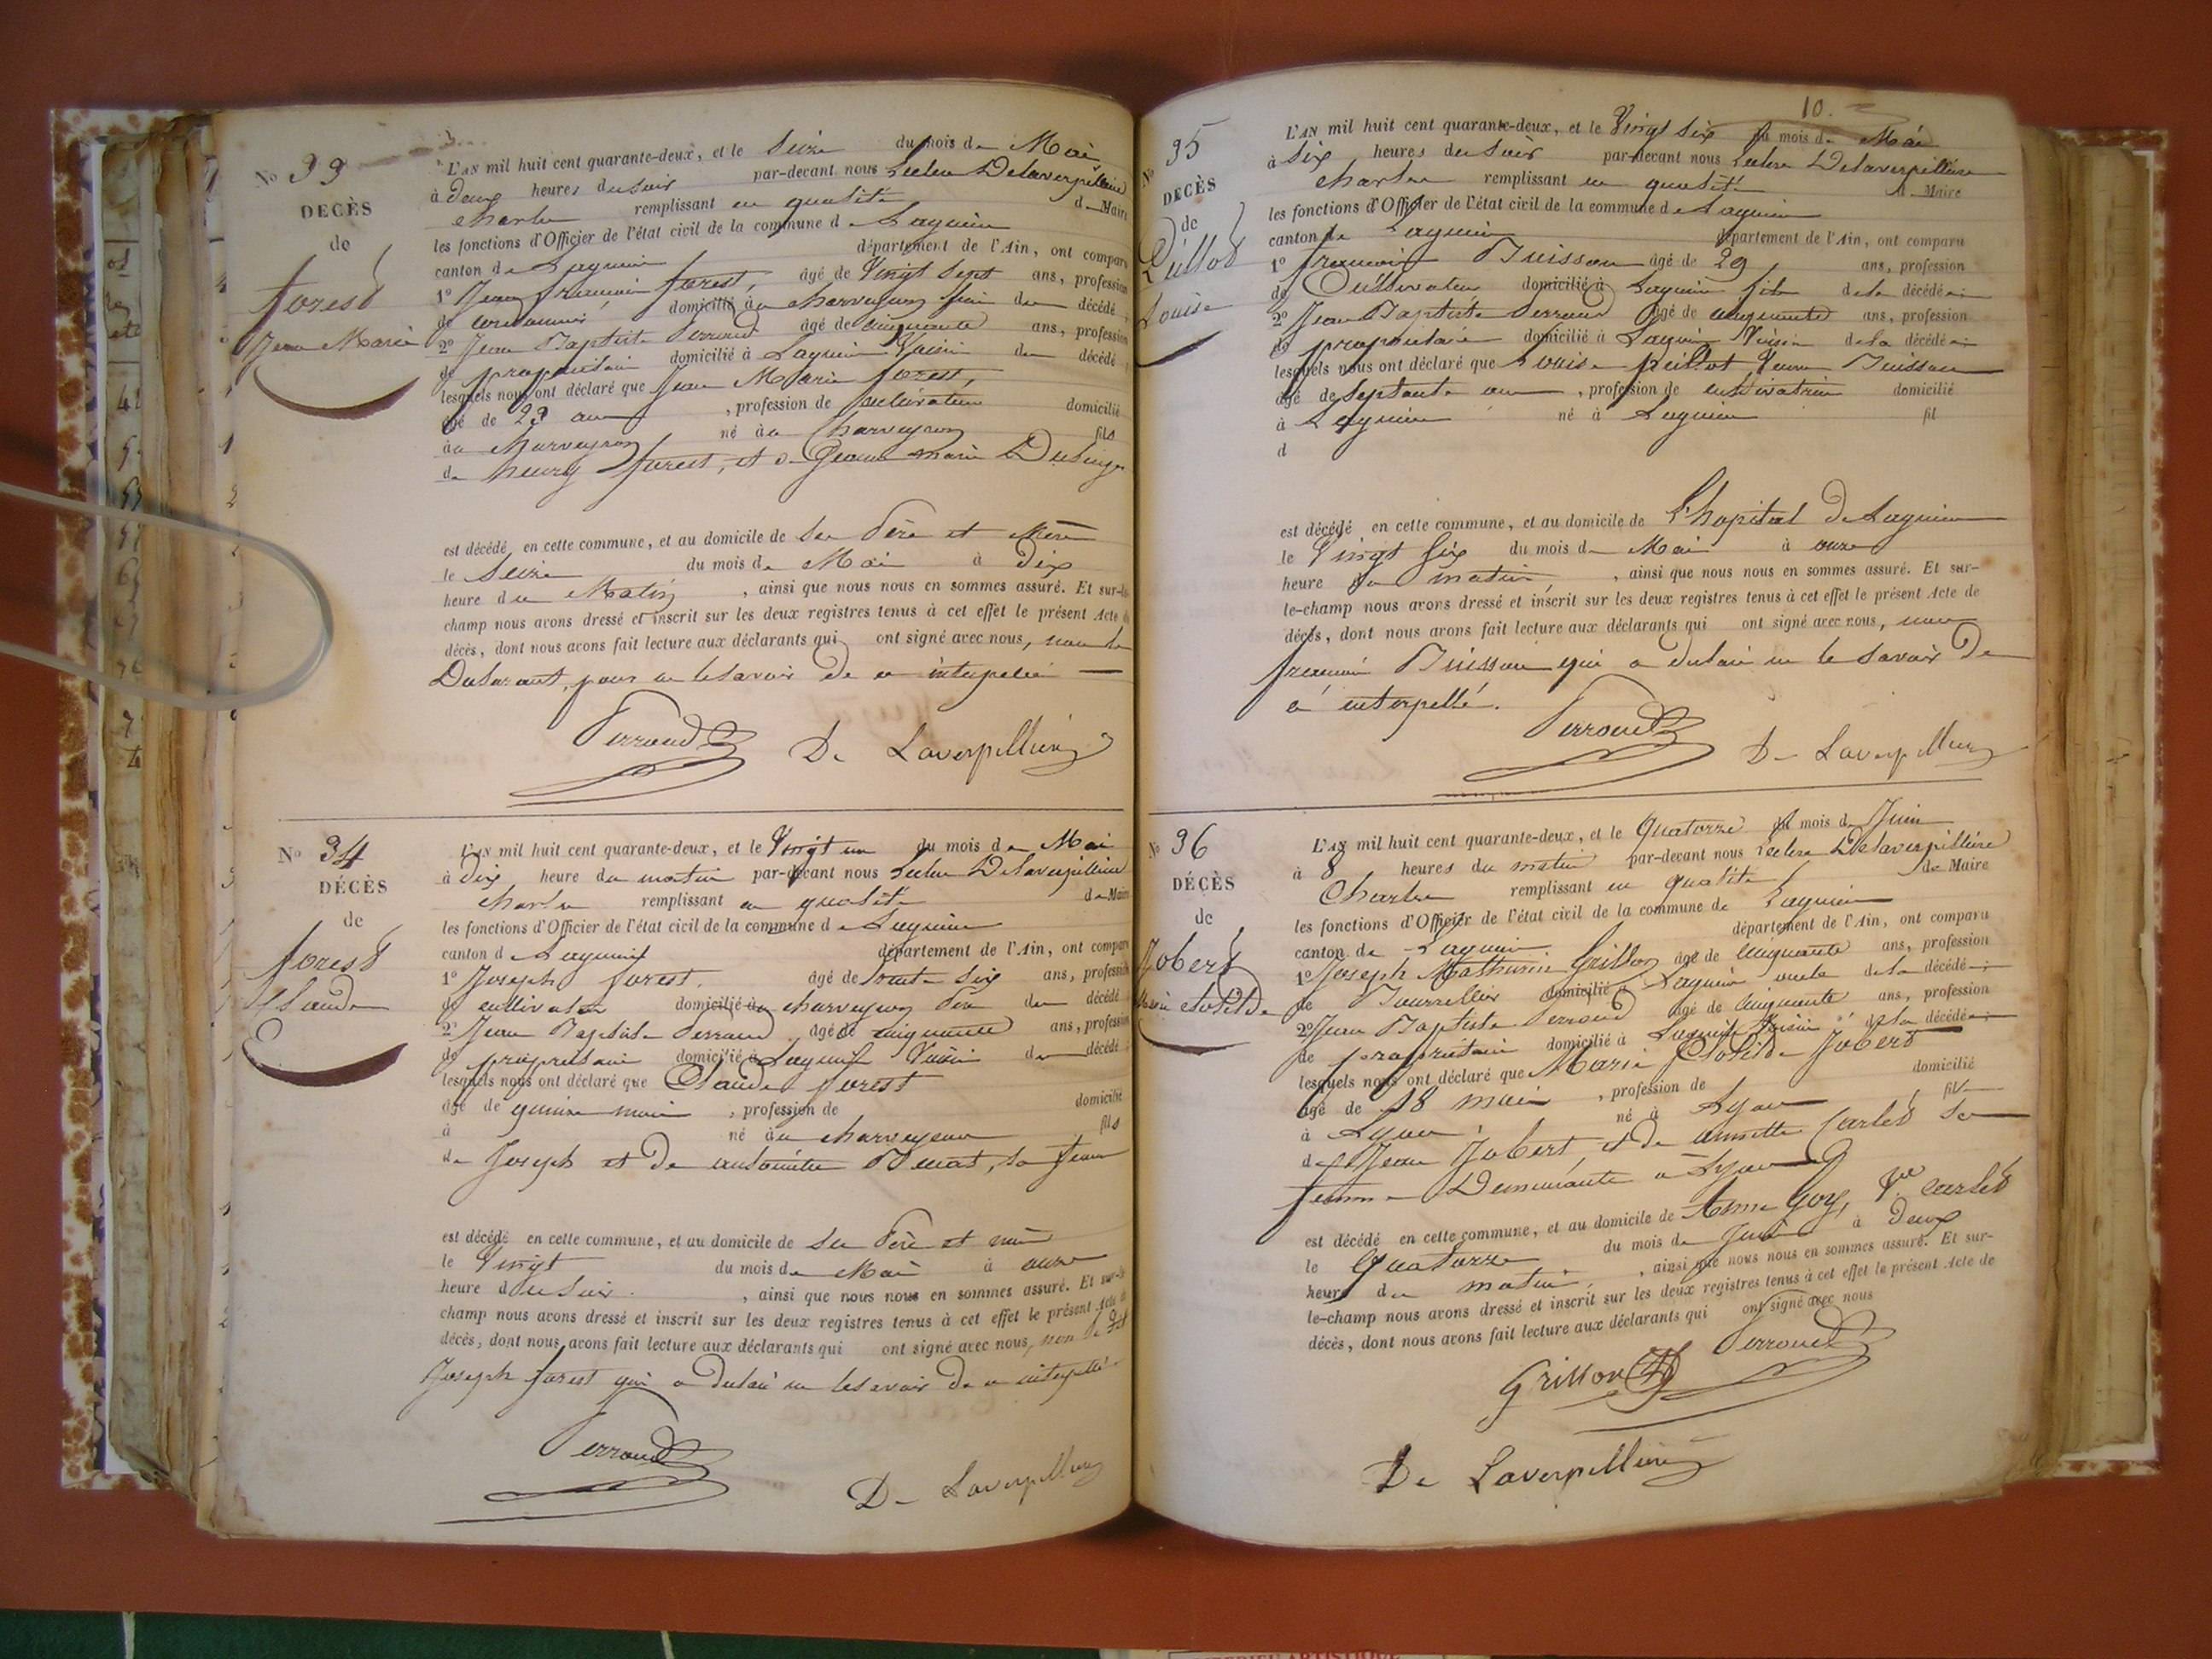 N° 33
DECÈS
de
forest
Jean Marie
L'AN mil huit cent quarante-deux, et le Seize du mois de Mai
à deux heures du soir par-devant nous Leclerc Delaverpillière
Charles remplissant en qualité de Maire
les fonctions d'Officier de l'état civil de la commune de Lagnieu
canton de Lagnieu département de l'Ain, ont comparu
1° Jean françois forest, âgé de Vingt Sept ans, profession
de cordonnier, domicilié au charveyron frère du décédé
2° Jean Baptiste Perroud âgé de cinquante ans, profession
de propriétaire domicilié à Lagnieu Voisin du décédé
lesquels nous ont déclaré que Jean Marie forest,
âgé de 23 ans, profession de cultivateur domicilié
au charveyron né au charveyron fils
de henry forest, et de Jeanne marie
est décédé en cette commune, et au domicile de ses Père et Mère
le Seize du mois de Mai à Dix
heure du Matin, ainsi que nous nous en sommes assuré. Et sur-le-
champ nous avons dressé et inscrit sur les deux registres tenus à cet effet le présent Acte de
décès, dont nous avons fait lecture aux déclarants qui ont signé avec nous, non le
Déclarant, pour ne le savoir de ce interpellé
Perroud De Laverpillière
N° 34
DÉCÈS
de
forest
Claude
L'AN mil huit cent quarante-deux, et le Vingt un du mois de Mai
à dix heure du matin par-devant nous Leclerc Delaverpillière
charles remplissant en qualité de Maire
les fonctions d'Officier de l'état civil de la commune de Lagnieu
canton de Lagnieu département de l'Ain, ont comparu
1° Joseph forest. âgé de trente Six ans, profession
de cultivateur domicilié au charveyron Père du décédé
2° Jean Baptiste Perroud, âgé de cinquante ans, profession
de propriétaire domicilié à Lagnieu Voisin du décédé
lesquels nous ont déclaré que Claude forest
âgé de quinze mois, profession de domicilié
à né au charveyron fils
de Joseph et de antoinette sa femme
est décédé en cette commune, et au domicile de ses Père et mère
le Vingt du mois de Mai à onze
heure du Soir. , ainsi que nous nous en sommes assuré. Et sur-le-
champ nous avons dressé et inscrit sur les deux registres tenus à cet effet le présent Acte de
décès, dont nous avons fait lecture aux déclarants qui ont signé avec nous, non le dit
Joseph forest qui a déclaré ne le savoir de ce interpellé
Perroud
De Laverpillière
10.
N° 35
DECÈS
de
Peillot
Louise
L'AN mil huit cent quarante-deux, et le Vingt six du mois de Mai
à six heures du soir par-devant nous Leclerc Delaverpillière
charles remplissant en qualité de Maire
les fonctions d'Officier de l'état civil de la commune de Lagnieu
canton de Lagnieu département de l'Ain, ont comparu
1° françois Buisson âgé de 29, ans, profession
de Cultivateur domicilié à Lagnieu fils de la décédée
2° Jean Baptiste Perroud âgé de cinquante ans, profession
de propriétaire domicilié à Lagnieu Voisin de la décédée
lesquels nous ont déclaré que Louise peillot Veuve Buisson
âgé de Septante ans, profession de cultivatrice domicilié
à Lagnieu né à Lagnieu fil
d
est décédé en cette commune, et au domicile de l'hopital de Lagnieu
le Vingt Six du mois de Mai à onze
heure du matin, , ainsi que nous nous en sommes assuré. Et sur-
le-champ nous avons dressé et inscrit sur les deux registres tenus à cet effet le présent Acte de
décès, dont nous avons fait lecture aux déclarants qui ont signé avec nous, non
françois Buisson qui a déclaré ne le savoir de
ce interpellé.
Perroud De Laverpillière
N° 36
DÉCÈS
de
Jobert
Marie clotilde
L'AN mil huit cent quarante-deux, et le Quatorze du mois de Juin
à 8 heures du matin par-devant nous Leclerc Delaverpillière
Charles remplissant en qualité de Maire
les fonctions d'Officier de l'état civil de la commune de Lagnieu
canton de Lagnieu département de l'Ain, ont comparu
1° Joseph Mathurin Grillon âgé de Cinquante ans, profession
de Bourrellier domicilié à Lagnieu oncle de la décédée
2° Jean Baptiste Perroud âgé de Cinquante ans, profession
de propriétaire domicilié à Lagnieu Voisin de la décédée
lesquels nous ont déclaré que Marie Clotilde Jobert
âgé de 18 mois, profession de domicilié
à Lyon, né à Lyon fil
de Jean Jobert, et de annette Carlet sa
femme Demeurante à Lyon
est décédé en cette commune, et au domicile de Anne Goy, Ve carlet
le Quatorze du mois de Juin à Deux
heure du matin, , ainsi que nous nous en sommes assuré. Et sur-
le-champ nous avons dressé et inscrit sur les deux registres tenus à cet effet le présent Acte de
décès, dont nous avons fait lecture aux déclarants qui ont signé avec nous
Grillon Perroud
De Laverpillière